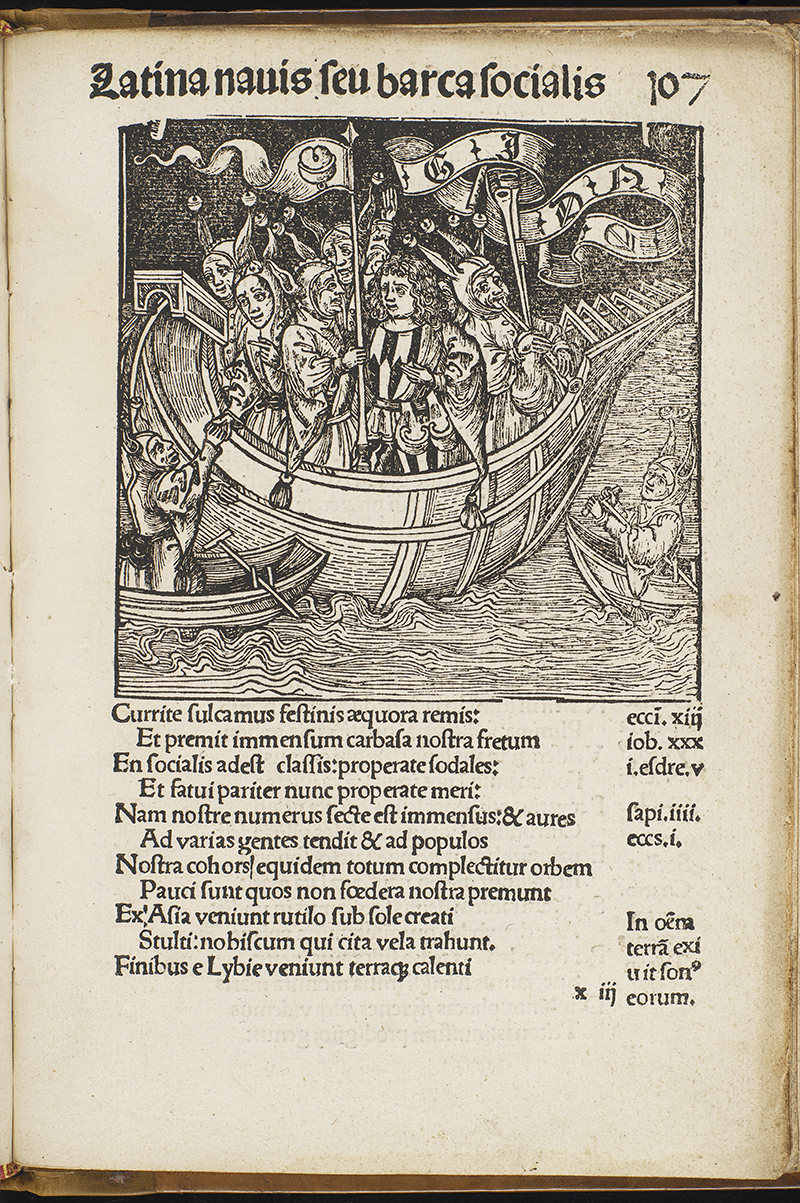 Latina nauis seu barca socialis 107
G I
D A
C
Currite sulcamus festinis æquora remis: ecci̅. xiij
Et premit immensum carbasa nostra fretum iob. xxx
En socialis adest classis: properate sodales: i. esdre. v
Et fatui pariter nunc properate meri:
Nam nostre numerus secte est immensus: & aures sapi. iiii.
Ad varias gentes tendit & ad populos eccs. i.
Nostra cohors/ equidem totum complectitur orbem
Pauci sunt quos non fœdera nostra premunt
Ex Asia veniunt rutilo sub sole creati In oẽm
Stulti: nobiscum qui cita vela trahunt. terrã exi
Finibus e Lybie veniunt terraqꝫ calenti uit sonꝰ
x iij eorum.